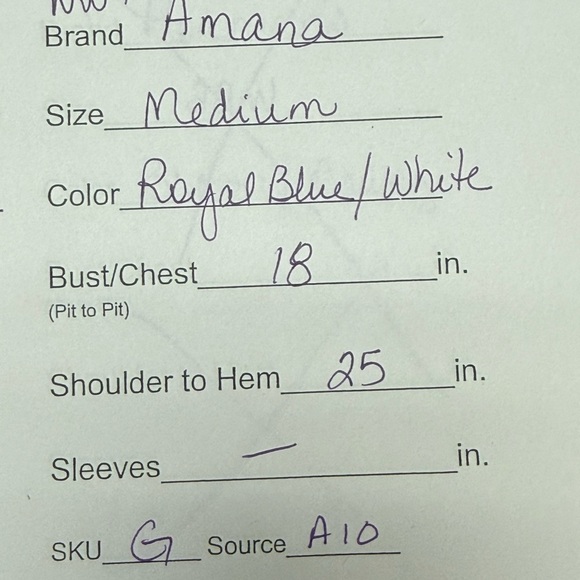 Brand Amana
Size Medium
Color Royal Blue/White
Bust/Chest 18 in.
(Pit to Pit)
Shoulder to Hem 25 in.
Sleeves — in.
SKU G Source A10